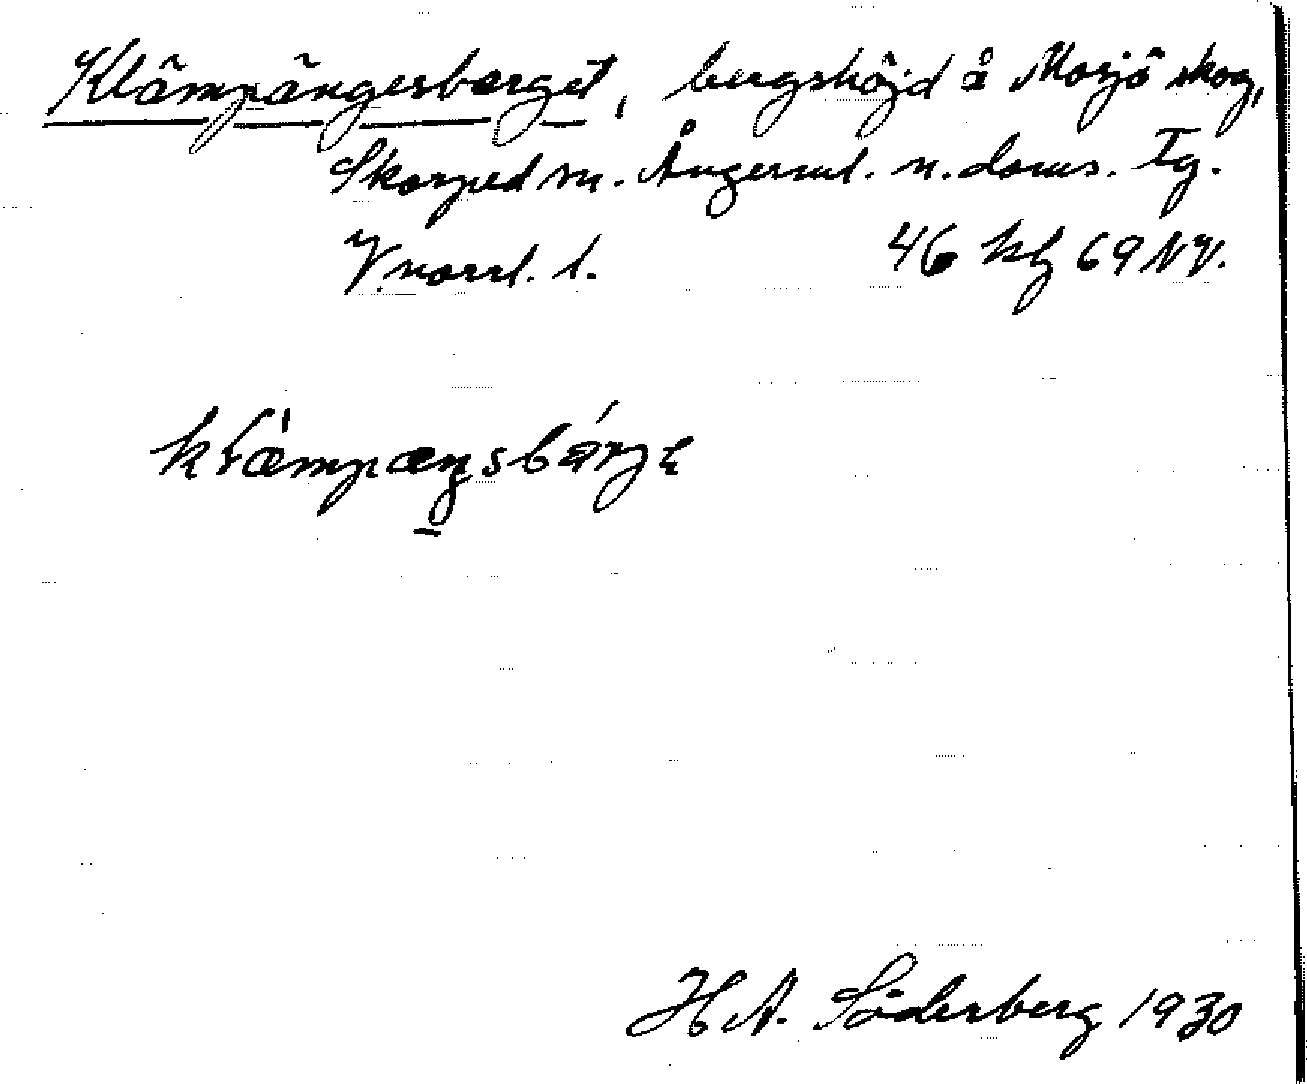 Klämpängesberget, bergshöjd å Mosjö skog,
Skorped sn. Ångerml. n. doms. Tg.
V norrl. l. 46 kbl 69 NV.
H. A. Söderberg 1930